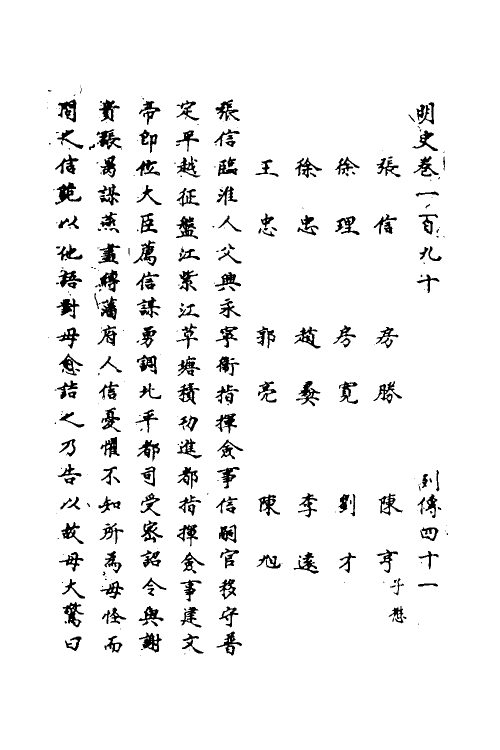 明史卷一百九十 列傳四十一
張信 房勝 陳亨子懋
徐理 房寬 劉才
徐忠 趙彝 李遠
王忠 郭亮 陳旭
張信臨淮人父興永寧衛指揮僉事信嗣官移守普
定平越征盤江紫江草塘積功進都指揮僉事建文
帝即位大臣薦信謀勇調北平都司受密詔令與謝
貴張昺謀燕盡縛藩府人信憂懼不知所為母怪而
問之信詭以他語對母愈詰之乃告以故母大驚曰